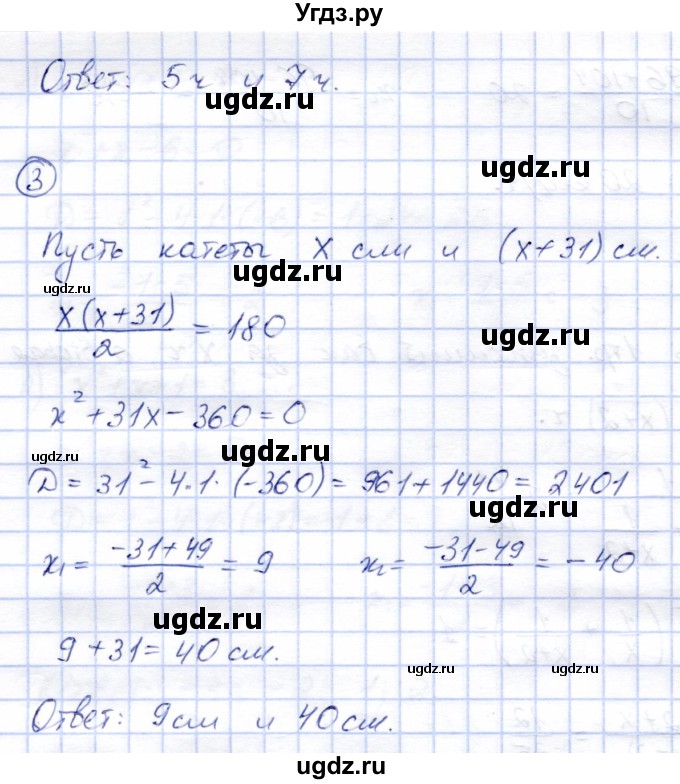 Угдз.ру
Ответ: 5ч и 7ч.
ugdz.ru
ugdz.ru
3
Пусть катеты x см и (x+31) см.
ugdz.ru ugdz.ru
x(x+31)/2 = 180
ugdz.ru
x² + 31x − 360 = 0
ugdz.ru
ugdz.ru
D = 31² − 4·1·(−360) = 961 + 1440 = 2401
ugdz.ru
x₁ = (−31+49)/2 = 9 x₂ = (−31−49)/2 = −40
ugdz.ru
ugdz.ru
9 + 31 = 40 см.
ugdz.ru
ugdz.ru
Ответ: 9 см и 40 см.
ugdz.ru
ugdz.ru